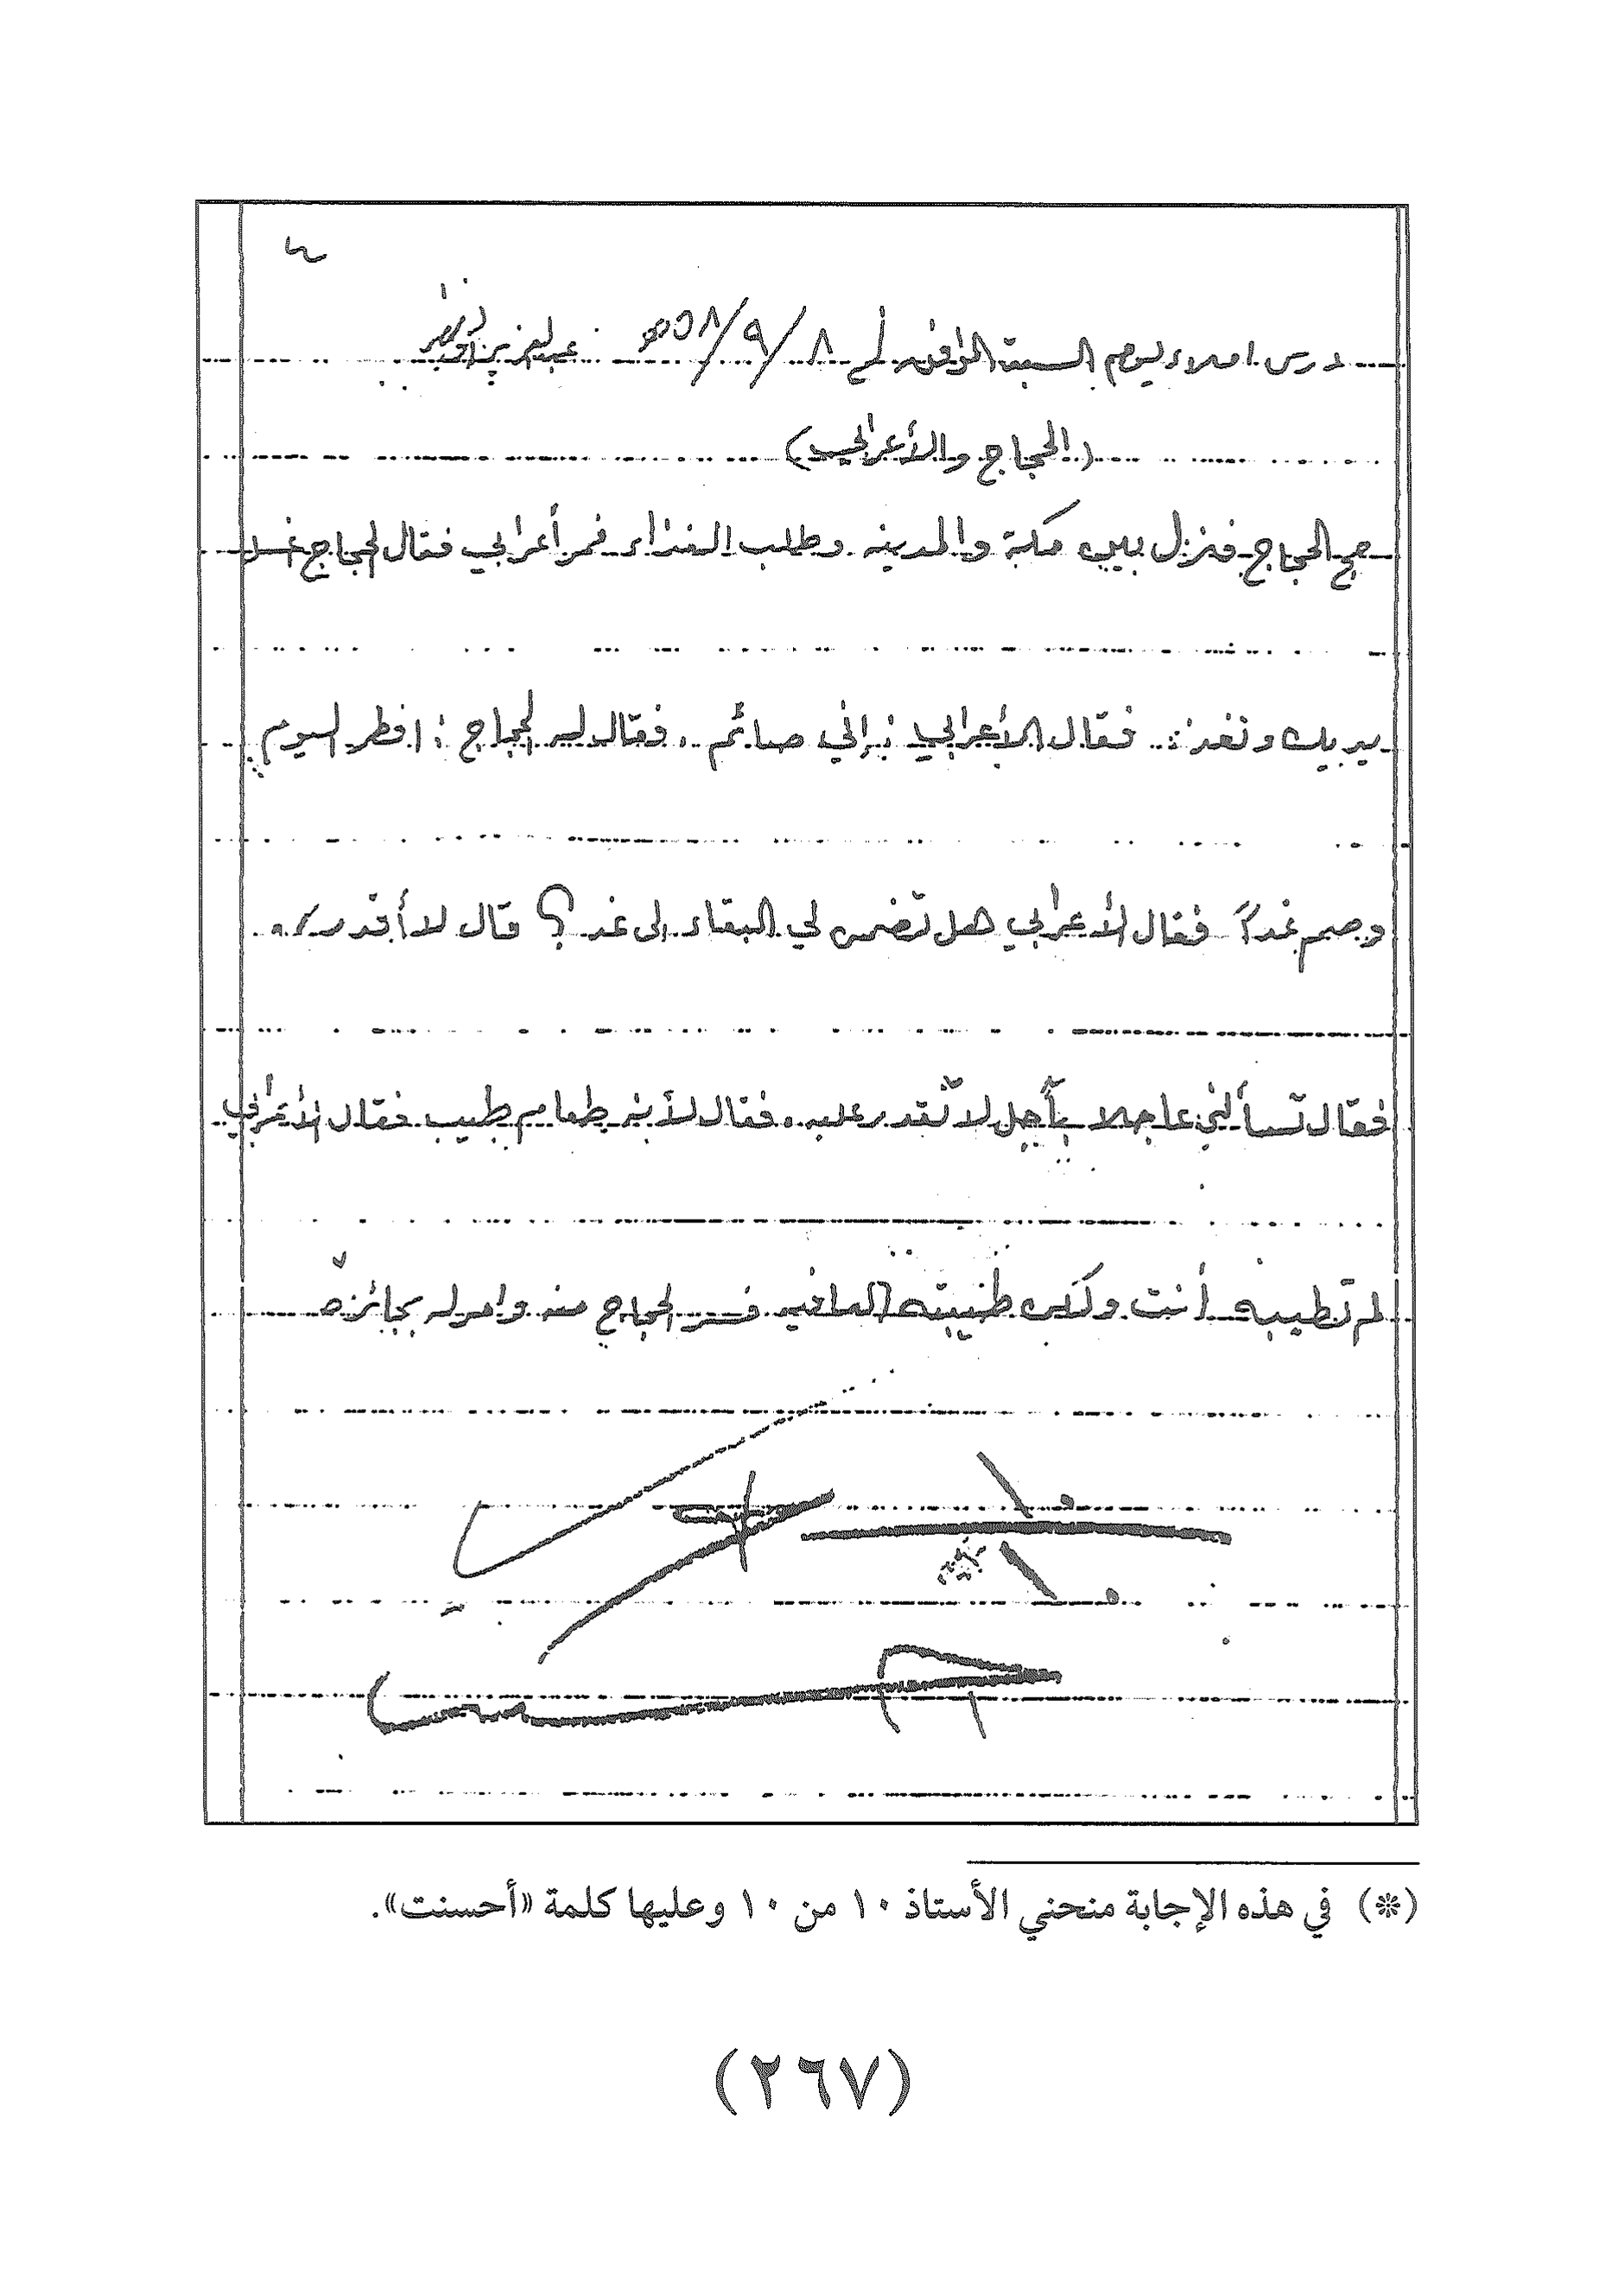 درس املاء ليوم السبت الموافق ٥٨/٩/٨
(الحجاج والأعرابي)
حج الحجاج فنزل بين مكة والمدينه وطلب الغذاء فمر أعرابي فقال الحجاج غسل
يديك وتغذ. فقال الأعرابي: إني صائم. فقال له الحجاج: افطر اليوم
وصم غداً فقال الأعرابي هل تضمن لي البقاء الى غد؟ قال لا أقدر.
فقال تسألني عاجلا بآجل لا تقدر عليه. فقال لأنه طعام طيب فقال الأعرابي
لم تطيبه أنت ولكن طيبته العافيه فسر الحجاج منه وامر له بجائزه
١٠
١٠
(*) في هذه الإجابة منحني الأستاذ ١٠ من ١٠ وعليها كلمة «أحسنت».
(٢٦٧)